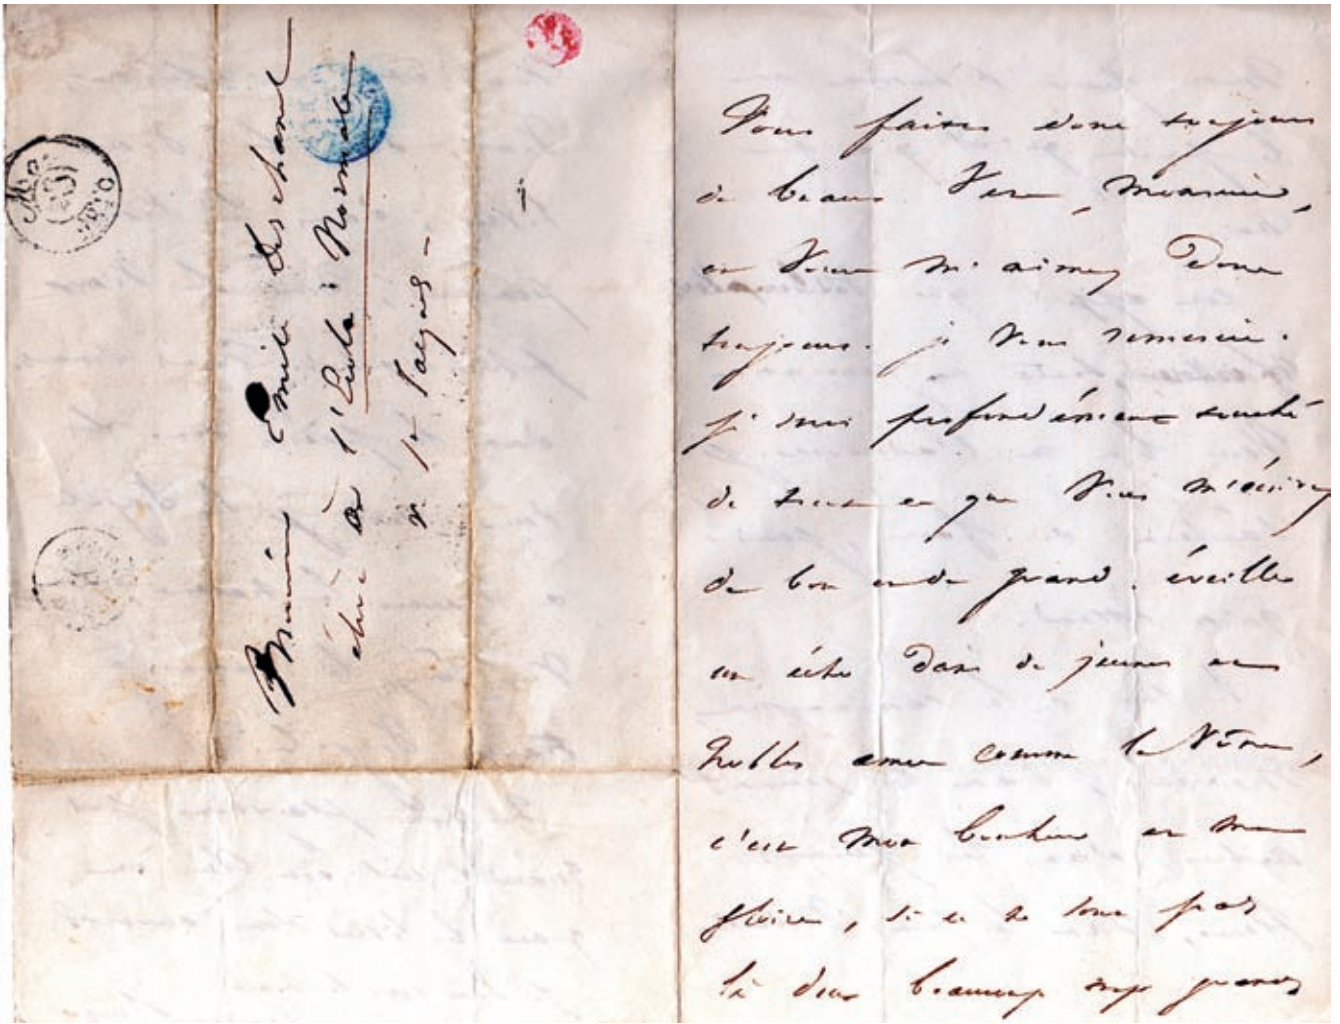 Monsieur Emile Deschanel
élève à l'Ecole Normale
r. St Jacques –
Vous faites donc toujours
de beaux vers, Monsieur,
et vous m'aimez donc
toujours. je vous remercie.
je suis profondément touché
de tout ce que vous m'écrivez
de bon et de grand. éveiller
un écho dans de jeunes et
nobles ames comme la vôtre,
c'est mon bonheur et ma
gloire, si ce ne sont pas
là deux beaucoup trop grands